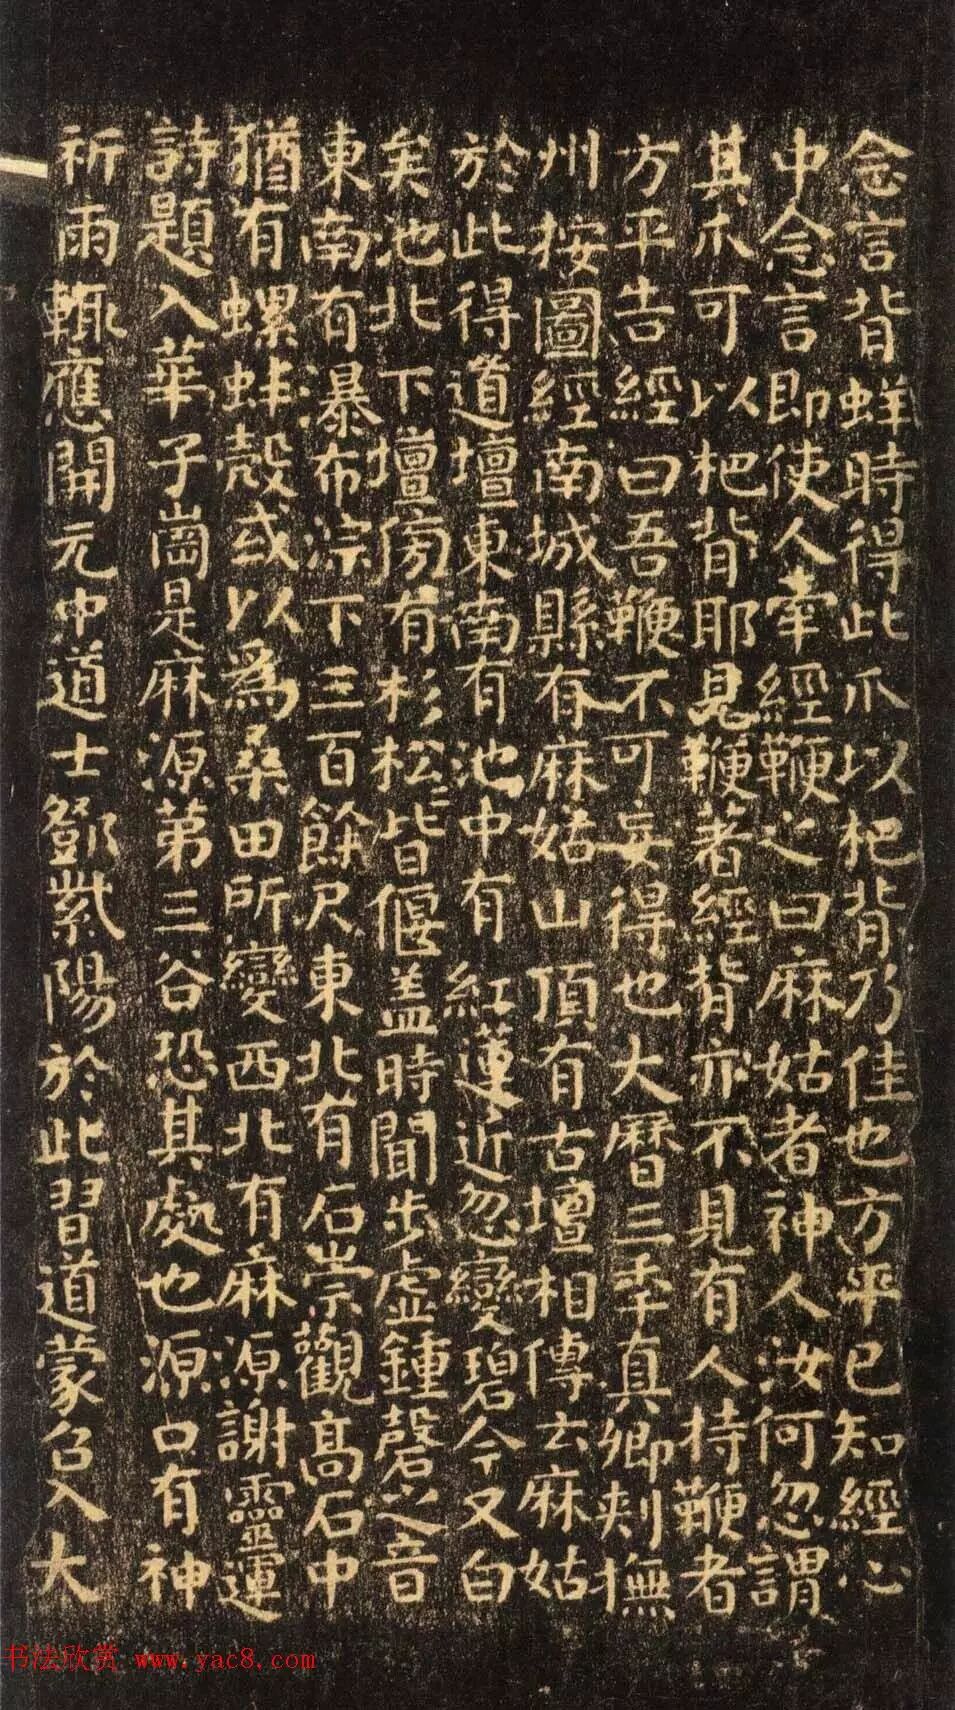 念言背蛘時得此爪以杷背乃佳也方平已知經心
中念言即使人牽經鞭之曰麻姑者神人汝何忽謂
其爪可以杷背耶見鞭著經背亦不見有人持鞭者
方平告經曰吾鞭不可妄得也大曆三年真卿刺撫
州按圖經南城縣有麻姑山頂有古壇相傳云麻姑
於此得道壇東南有池中有紅蓮近忽變碧今又白
矣池北下壇傍有杉松松皆偃蓋時聞步虛鍾磬之音
東南有瀑布淙下三百餘尺東北有石崇觀高石中
猶有螺蚌殼或以為桑田所變西北有麻源謝靈運
詩題入華子崗是麻源第三谷恐其處也源口有神
祈雨輒應開元中道士鄧紫陽於此習道蒙召入大
书法欣赏 www.yac8.com